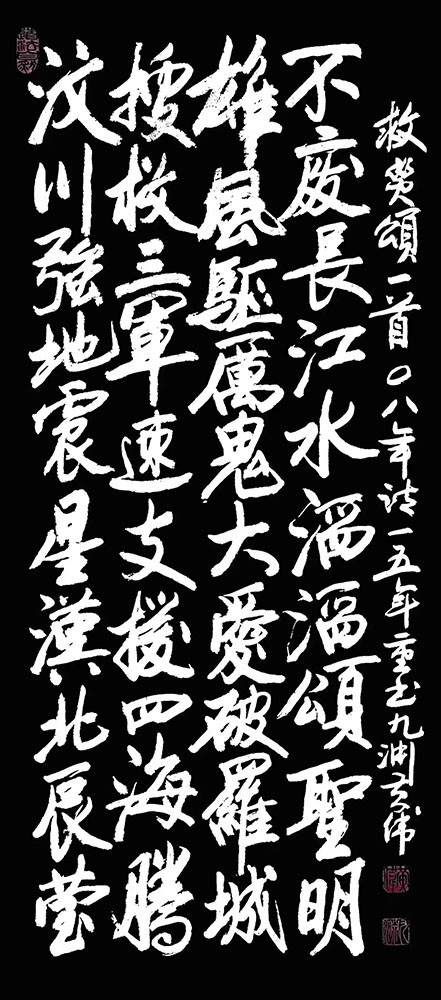 汶川強地震星漢北辰瑩
搜救三軍速支援四海騰
雄風驅厲鬼大愛破羅城
不廢長江水滔滔頌聖明
救頌一首〇八年詩一五年重書九渊